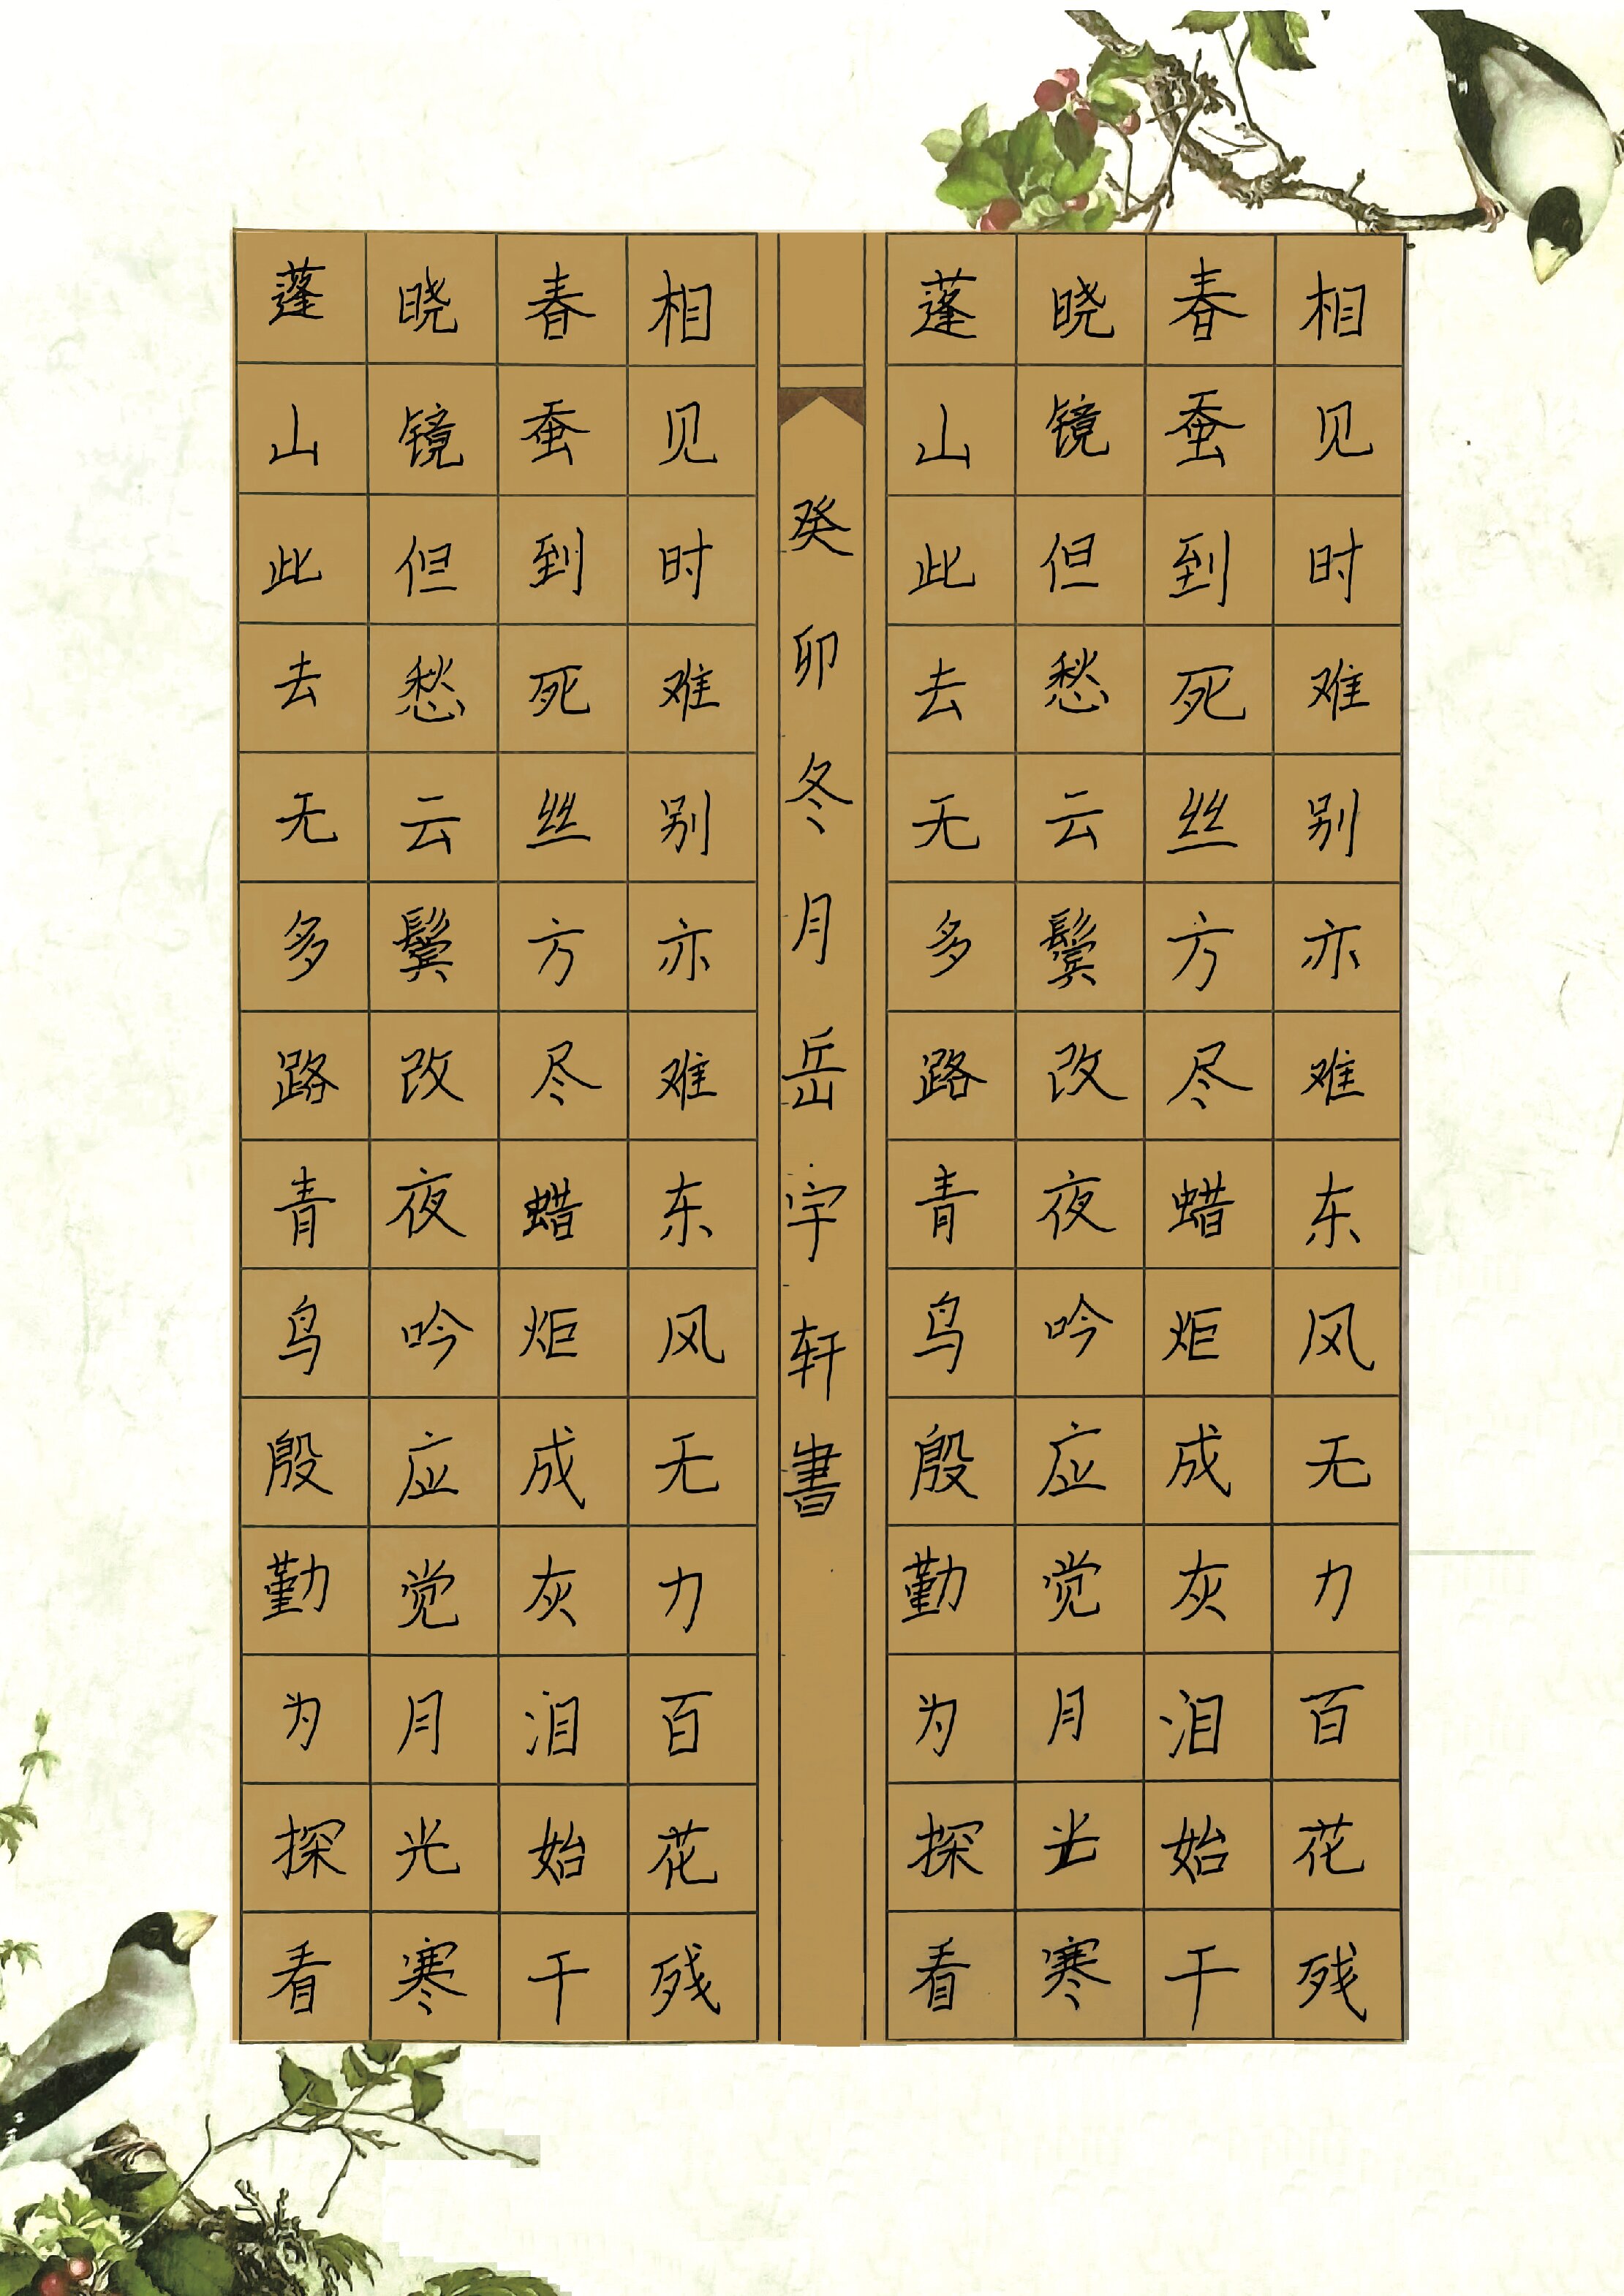 相见时难别亦难东风无力百花残
春蚕到死丝方尽蜡炬成灰泪始干
晓镜但愁云鬓改夜吟应觉月光寒
蓬山此去无多路青鸟殷勤为探看
癸卯冬月岳宇轩書
相见时难别亦难东风无力百花残
春蚕到死丝方尽蜡炬成灰泪始干
晓镜但愁云鬓改夜吟应觉月光寒
蓬山此去无多路青鸟殷勤为探看